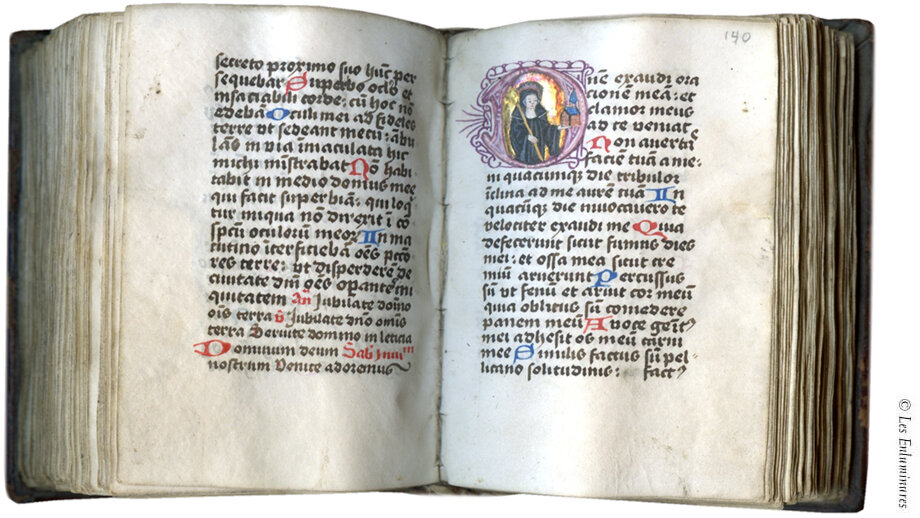 secreto proximo suo hūc per
sequebar Superbo oclo et
insaciabili corde: cū hoc nō
edebā Oculi mei ad fideles
terre vt sedeant mecū: ābu
lās in via īmaculata hic
michi mīstrabat Nō habi
tabit in medio domus mee
qui facit superbiā: qui loq̄
tur iniqua nō direxit ī cō
spcū oculorū meoꝝ In ma
tutino īterficiebā oēs pctō
res terre: vt disperderē de
ciuitate dn̄i oēs operante
iniquitatem An̄ Jubilate domō
ois terra v̄ Jubilate dn̄o om̄is
terra Seruite domino in leticia
Dominum deum Sab
nostrum Venite adoremus
140
Dn̄e exaudi ora
cionē meā: et
clamor meus
ad te veniat
Non auertā
faciē tuā a me:
in quacūque die tribulor
īclina ad me aurē tuā In
quacūq̄ die inuocauero te
velociter exaudi me Quia
defecerunt sicut fumus dies
mei: et ossa mea sicut cre
miū aruerunt Percussus
sū vt fenū et aruit cor meū
quia oblitus sū comedere
panem meū A voce geīt9
mei adhesit os meū carni
mee Similis factus sū pel
licano solitudinis: fact9
© Les Enluminures